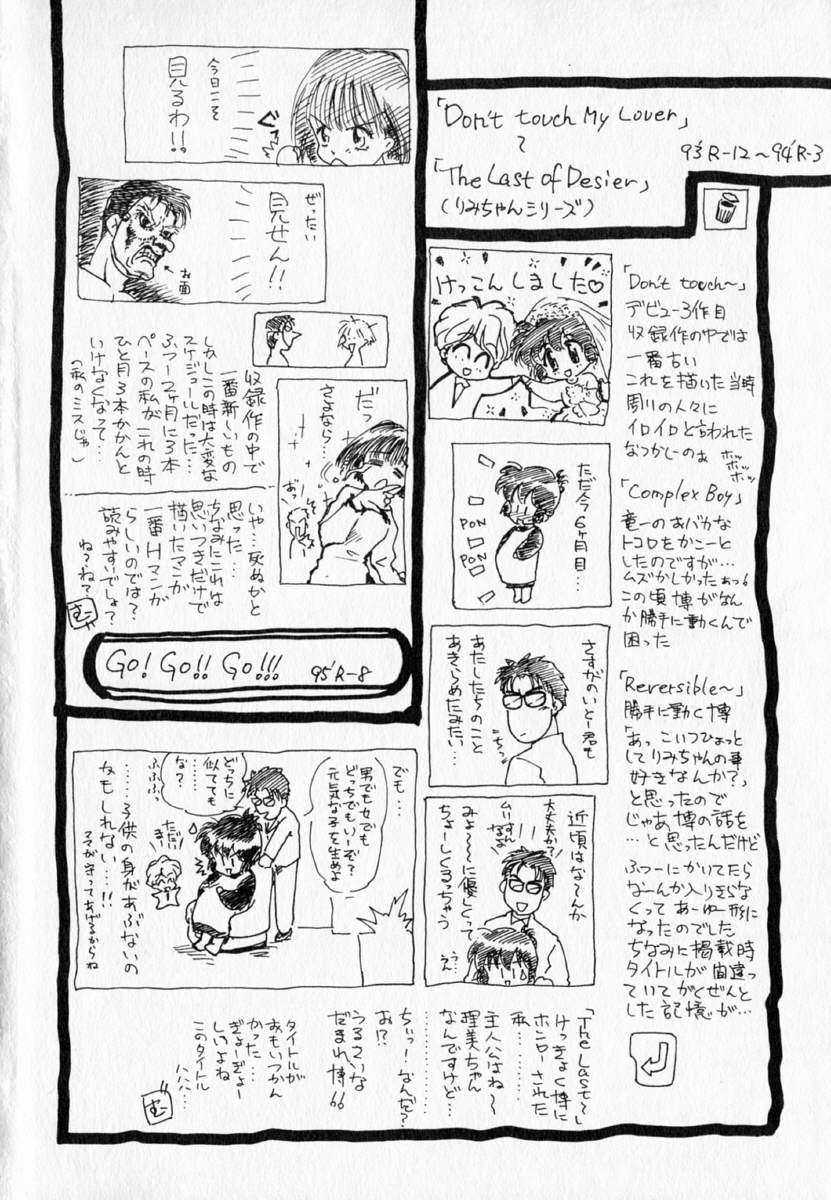 「Don't touch My Lover」
〜
「The Last of Desier」
(りみちゃんシリーズ)
93'R-12〜94'R-3
「Don't touch〜」
デビュー3作目
収録作の中では
一番古い
これを描いた当時
周りの人々に
イロイロと言われた
なつかしーのぉ
ホッ
ホッ
ホッ
「Complex Boy」
竜一のおバカな
トコロをかこーと
したのですが…
ムズかしかったぁっ
この頃博がなん
か勝手に動くんで
困った
「Reversible〜」
勝手に動く博
「あっ こいつひょっと
してりみちゃんの事
好きなんか?」
と思ったので
じゃあ博の話を
…と思ったんだけど
ふつーにかいてたら
なーんか入りきらな
くってあーゆー形に
なったのでした
ちなみに掲載時
タイトルが間違っ
ていてがくぜんと
した記憶が…
けっこんしました♡
ただ今6ヶ月目…
PON
PON
さすがのいとー君も
あたしたちのこと
あきらめたみたい…
近頃はな〜んか
みょ〜〜に優しくって
ちょーしくるっちゃう
大丈夫か?
ムリすん
なよ
う…
うん
でも…
男でも女でも
どっちでもいーぞ?
元気な子を生めよ
どっちに
似てても
な?
ふふふっ
ただい
まー
……子供の身があぶないの
かもしれない…!!
ママが守ってあげるからね
「The Last〜」
けっきょく博に
ホンローされた
私…
主人公はね〜
理美ちゃん
なんですけど…
………
ちぃっーなんだ?
お!?
うるさいな
だまれ博
タイトルが
おもいつかん
かった…
ぎょーぎょー
しいよね
このタイトル
ハハハ…
む
今日こそ
見るわ!!
ぐっ
ぜったい
見せん!!
お面
だっ
さよなら…
おっ
収録作の中で
一番新しいもの
しかしこの時は大変な
スケジュールだった…
ふつー2ヶ月に3本
ペースの私がこれの時
ひと月3本かかんと
いけなくなって…
(私のミスじゃ)
いや…死ぬかと
思った…
ちなみにこれは
思いつきだけで
描いたマンガ
一番Hマンガ
らしいのでは?
読みやすいでしょ?
ね?ね?
む
Go! Go!! Go!!! 95'R-8